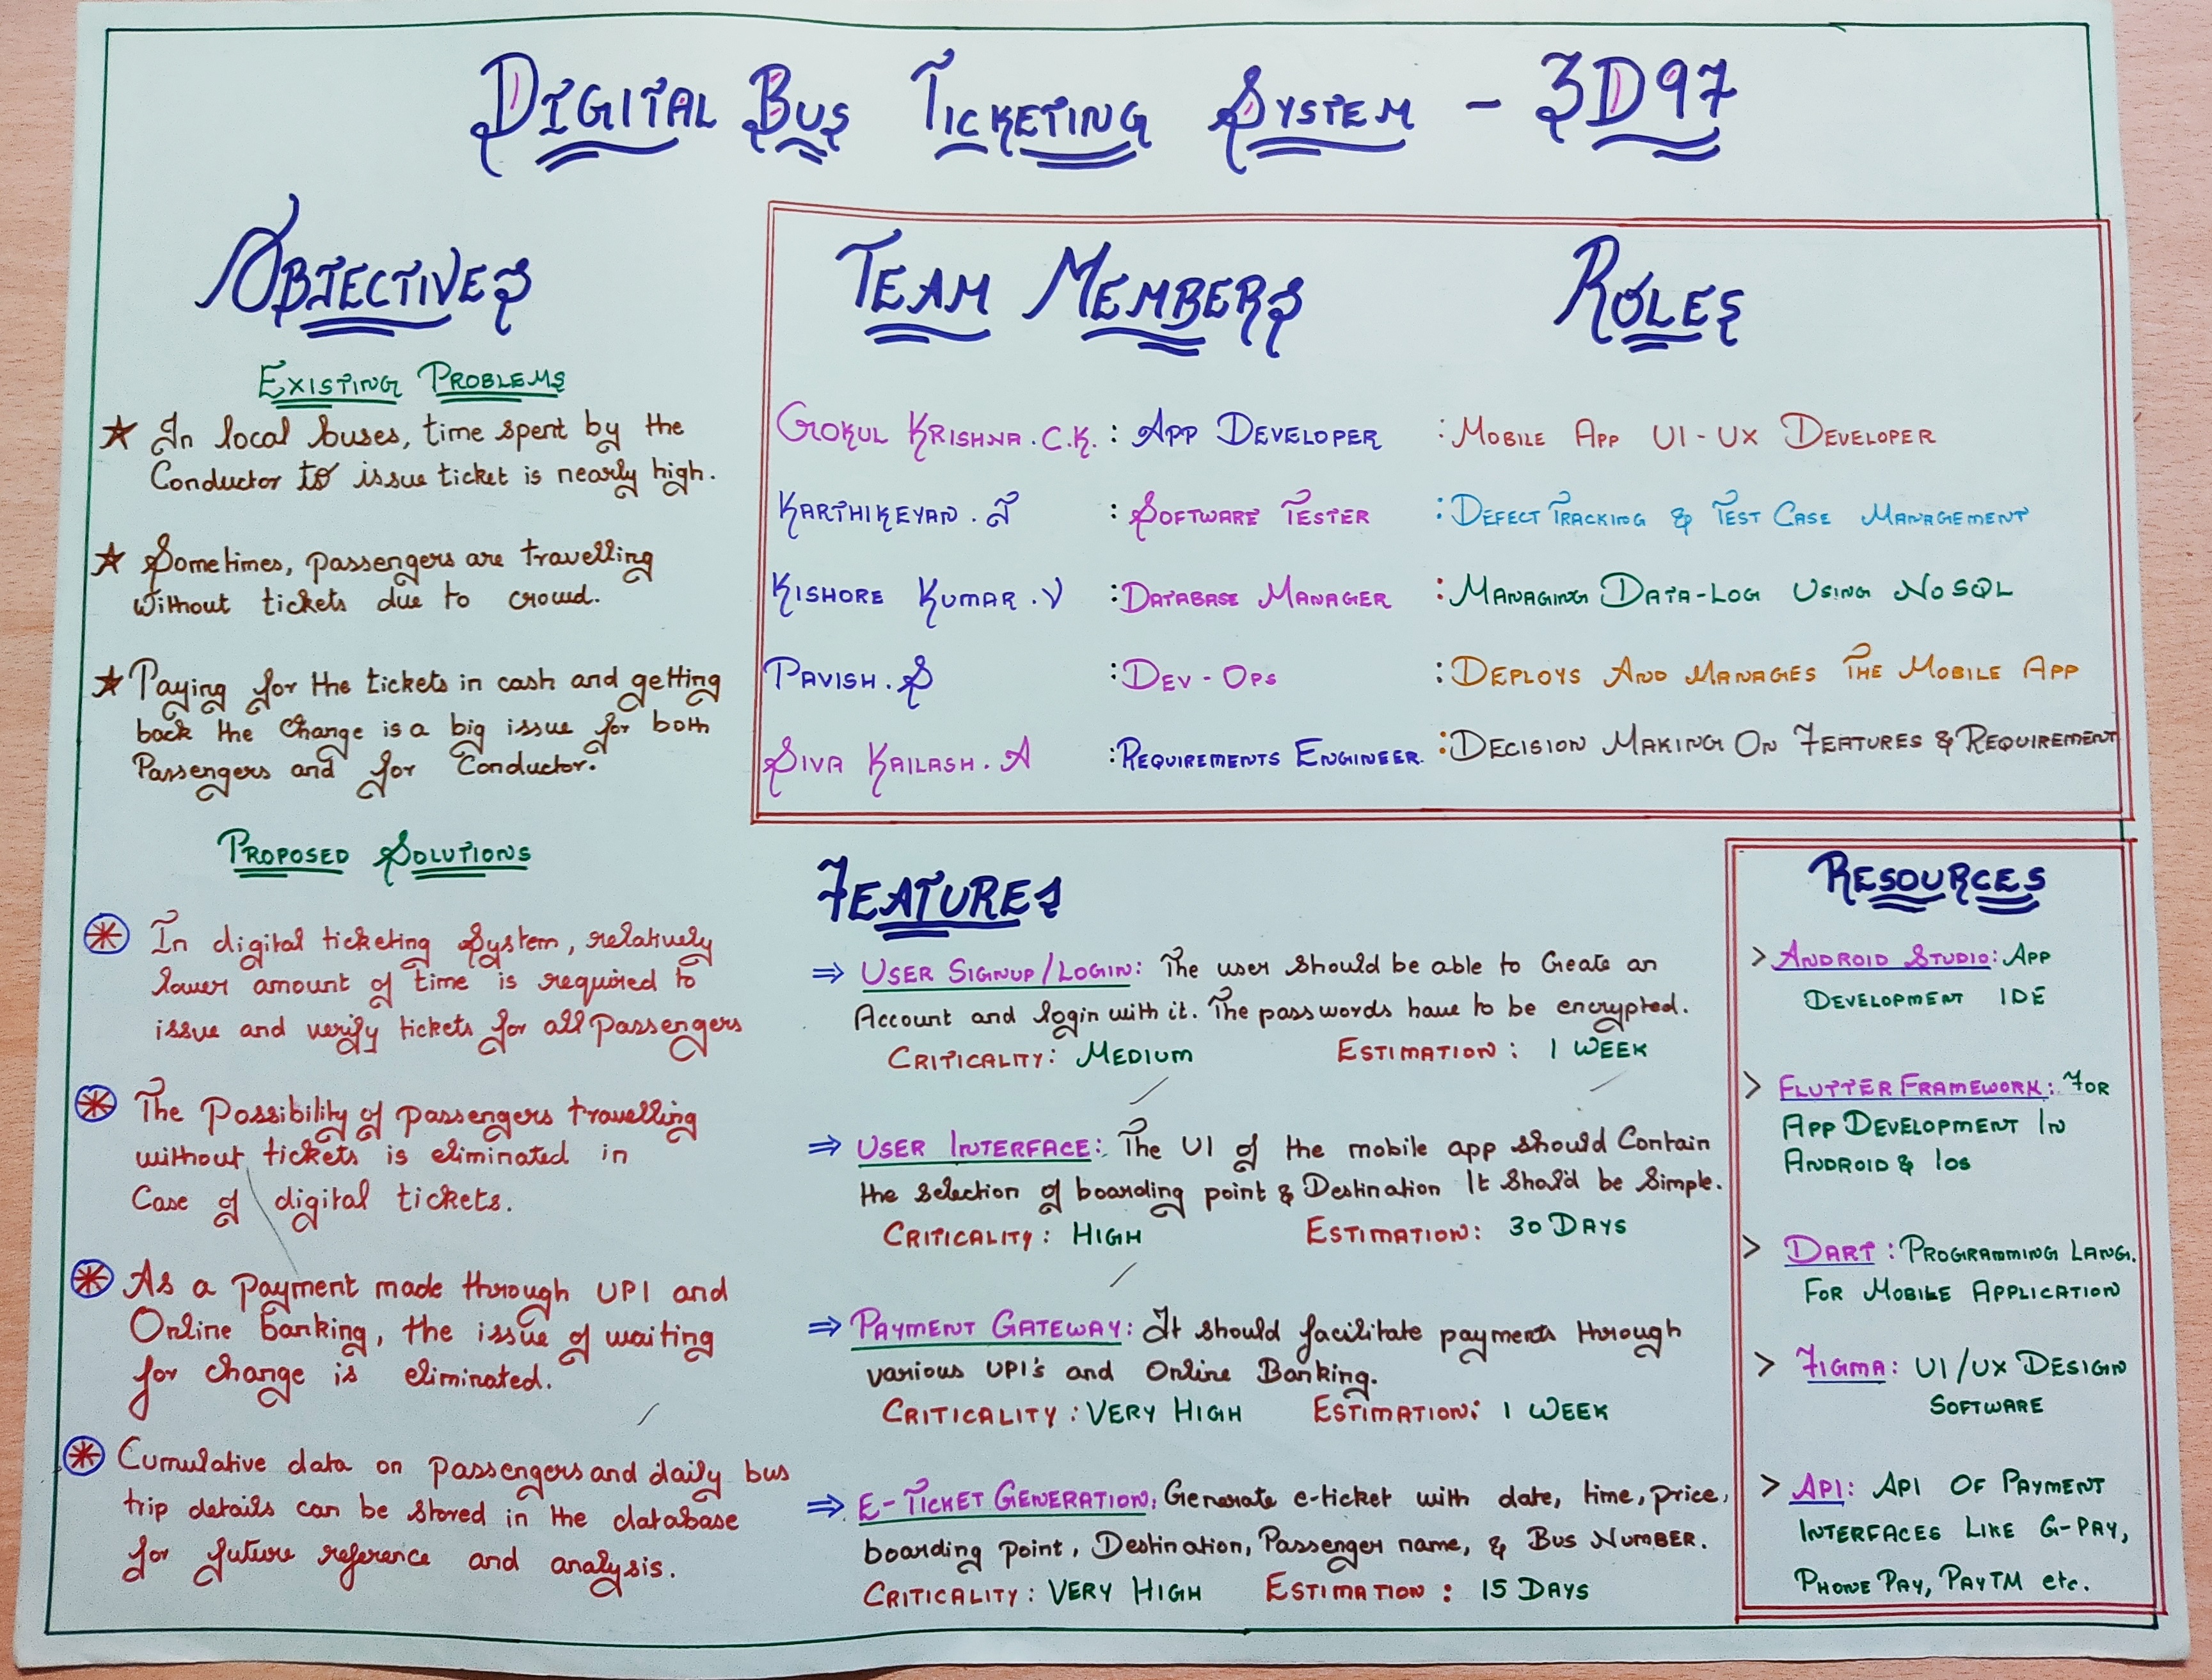 DIGITAL BUS TICKETING SYSTEM - 3D97
OBJECTIVES
EXISTING PROBLEMS
In local buses, time spent by the
Conductor to issue ticket is nearly high.
Sometimes, passengers are travelling
Without tickets due to crowd.
Paying for the tickets in cash and getting
back the Change is a big issue for both
Passengers and for Conductor.
PROPOSED SOLUTIONS
In digital ticketing System, relatively
lower amount of time is required to
issue and verify tickets for all Passengers
The Possibility of passengers travelling
without tickets is eliminated in
Case of digital tickets.
As a Payment made through UPI and
Online banking, the issue of waiting
for change is eliminated.
Cumulative data on passengers and daily bus
trip details can be stored in the database
for future reference and analysis.
TEAM MEMBERS ROLES
GOKUL KRISHNA.C.K. : APP DEVELOPER : MOBILE APP UI-UX DEVELOPER
KARTHIKEYAN.J : SOFTWARE TESTER : DEFECT TRACKING & TEST CASE MANAGEMENT
KISHORE KUMAR.V : DATABASE MANAGER : MANAGING DATA-LOG USING NOSQL
PAVISH.S : DEV-OPS : DEPLOYS AND MANAGES THE MOBILE APP
SIVA KAILASH.A : REQUIREMENTS ENGINEER. : DECISION MAKING ON FEATURES & REQUIREMENT
FEATURES
⇒ USER SIGNUP/LOGIN: The user should be able to Create an
Account and login with it. The passwords have to be encrypted.
CRITICALITY: MEDIUM ESTIMATION: 1 WEEK
⇒ USER INTERFACE: The UI of the mobile app should Contain
the selection of boarding point & Destination It Should be Simple.
CRITICALITY: HIGH ESTIMATION: 30 DAYS
⇒ PAYMENT GATEWAY: It should facilitate payments through
various UPI's and Online Banking.
CRITICALITY: VERY HIGH ESTIMATION: 1 WEEK
⇒ E-TICKET GENERATION: Generate e-ticket with date, time, price,
boarding point, Destination, Passenger name, & BUS NUMBER.
CRITICALITY: VERY HIGH ESTIMATION: 15 DAYS
RESOURCES
> ANDROID STUDIO: APP
DEVELOPMENT IDE
> FLUTTER FRAMEWORK: FOR
APP DEVELOPMENT IN
ANDROID & IOS
> DART: PROGRAMMING LANG.
FOR MOBILE APPLICATION
> FIGMA: UI/UX DESIGN
SOFTWARE
> API: API OF PAYMENT
INTERFACES LIKE G-PAY,
PHONE PAY, PAYTM etc.